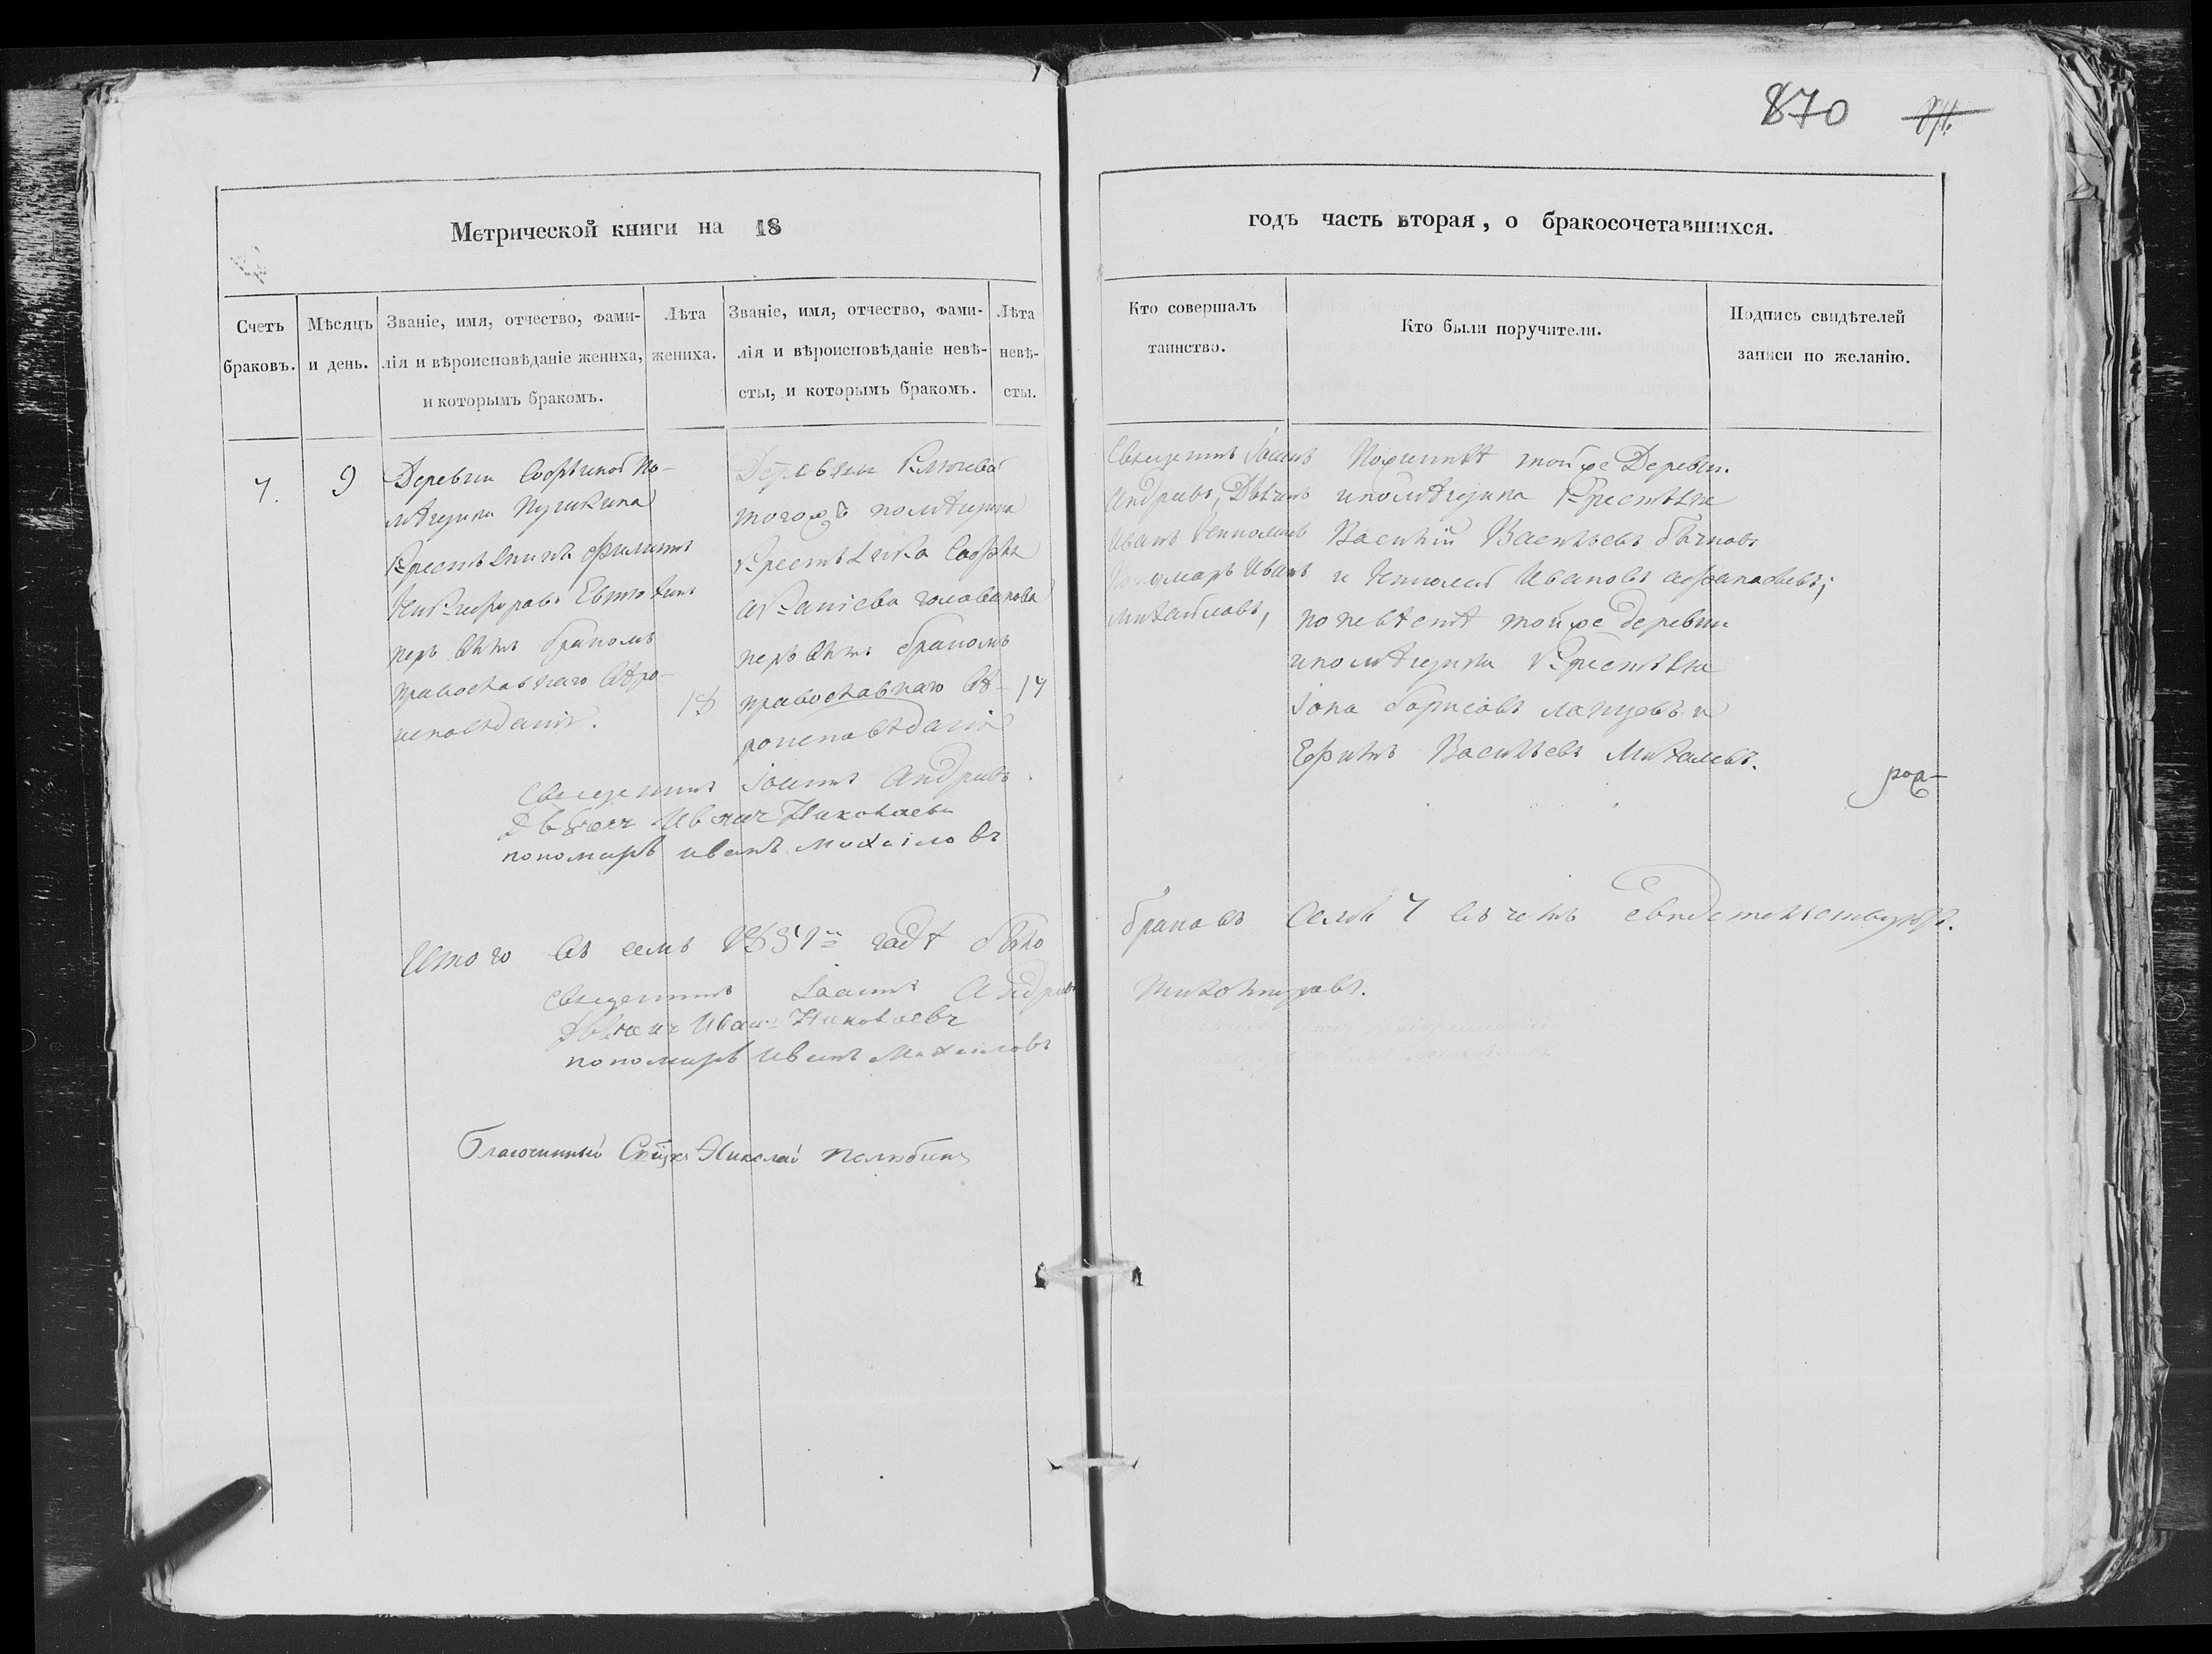 870
Метрической книги на 18
годъ часть вторая, о бракосочетавшихся.
Счетъ браковъ.
Мѣсяцъ и день.
Званіе, имя, отчество, фами-
лія и вѣроисповѣданіе жениха,
и которымъ бракомъ.
Лѣта
жениха.
Званіе, имя, отчество, фами-
лія и вѣроисповѣданіе невѣ-
сты, и которымъ бракомъ.
Лѣта
невѣ-
сты.
Кто совершалъ
таинство.
Кто были поручители.
Подпись свидѣтелей
записи по желанію.
7.
9
Деревни по-
мѣщика Пушкина
крестьянинъ Филиппъ
Никифоровъ
первымъ бракомъ
православнаго вѣро-
исповѣданія.
18
Деревни Ключевой
того жъ помѣщика
крестьянка Софья
голованова
первымъ бракомъ
православнаго вѣ-
роисповѣданія
17
Священникъ Іоаннъ
Андреевъ, Дьячекъ
Иванъ Николаевъ
Пономарь Иванъ
Михайловъ,
По женихѣ той же Деревни
и помѣщика Крестьяне
Василій Васильевъ
и Николай Ивановъ Афанасьевъ;
по невѣстѣ той же деревни
и помѣщика Крестьяне
Іона Борисовъ и
Ефимъ Васильевъ Михалевъ.
Священникъ Іоаннъ Андреевъ.
Дьячекъ Иванъ Николаевъ
пономарь иванъ михаиловъ
Итого въ семъ 1851м годѣ было
браковъ семь 7 въ чемъ свидетельствуютъ.
Священникъ Іоаннъ Андреевъ
Дьячекъ Иванъ Николаевъ
пономарь иванъ Михаиловъ
Благочинный Николай